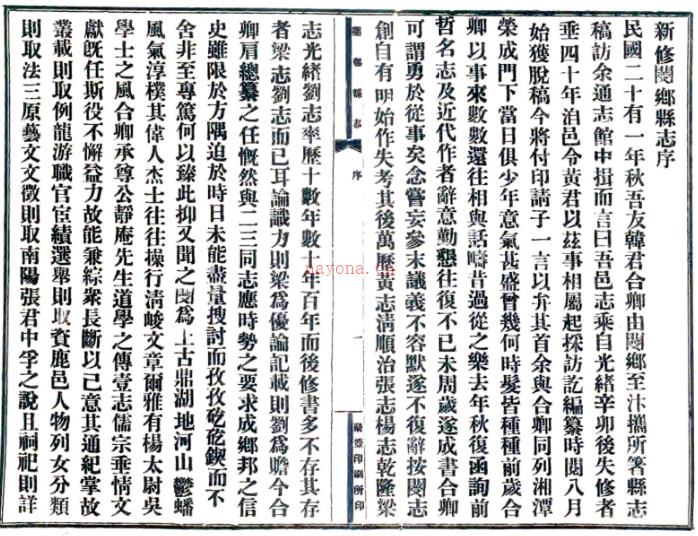 新修閿鄉縣志序
民國二十有一年秋吾友韓君合卿由閿鄉至汴攜所箸縣志
稿訪余通志館中揖而言曰吾邑志乘自光緒辛卯後失修者
垂四十年泊邑令黃君以玆事相屬起採訪訖編纂時閱八月
始獲脫稿今將付印請子一言以弁其首余與合卿同列湘潭
榮成門下當日俱少年意氣甚盛曾幾何時髮皆種種前歲合
卿以事來數數還往相與話疇昔過從之樂去年秋復函詢前
哲名志及近代作者辭意勤懇往復不已未周歲遂成書合卿
可謂勇於從事矣念嘗妄參末議義不容默遂不復辭按閿志
創自有明始作失考其後萬歷黃志淸順治張志楊志乾隆梁
閿鄉縣志
序
一
聚奎印刷所印
志光緒劉志率歷十數年數十年百年而後修書多不存其存
者梁志劉志而已耳論識力則梁爲優論記載則劉爲贍今合
卿肩總纂之任慨然與二三同志應時勢之要求成鄉邦之信
史雖限於方隅迫於時日未能盡量搜討而孜孜矻矻鍥而不
舍非至專篤何以臻此抑又聞之閿爲上古鼎湖地河山鬱蟠
風氣淳樸其偉人杰士往往操行淸峻文章爾雅有楊太尉吳
學士之風合卿承尊公靜庵先生道學之傳壹志儒宗垂情文
獻旣任斯役不懈益力故能兼綜衆長斷以己意其通紀掌故
叢載則取例龍游職官宦績選舉則取資鹿邑人物列女分類
則取法三原藝文文徵則取南陽張君中孚之說且祠祀則詳
nayona.cn